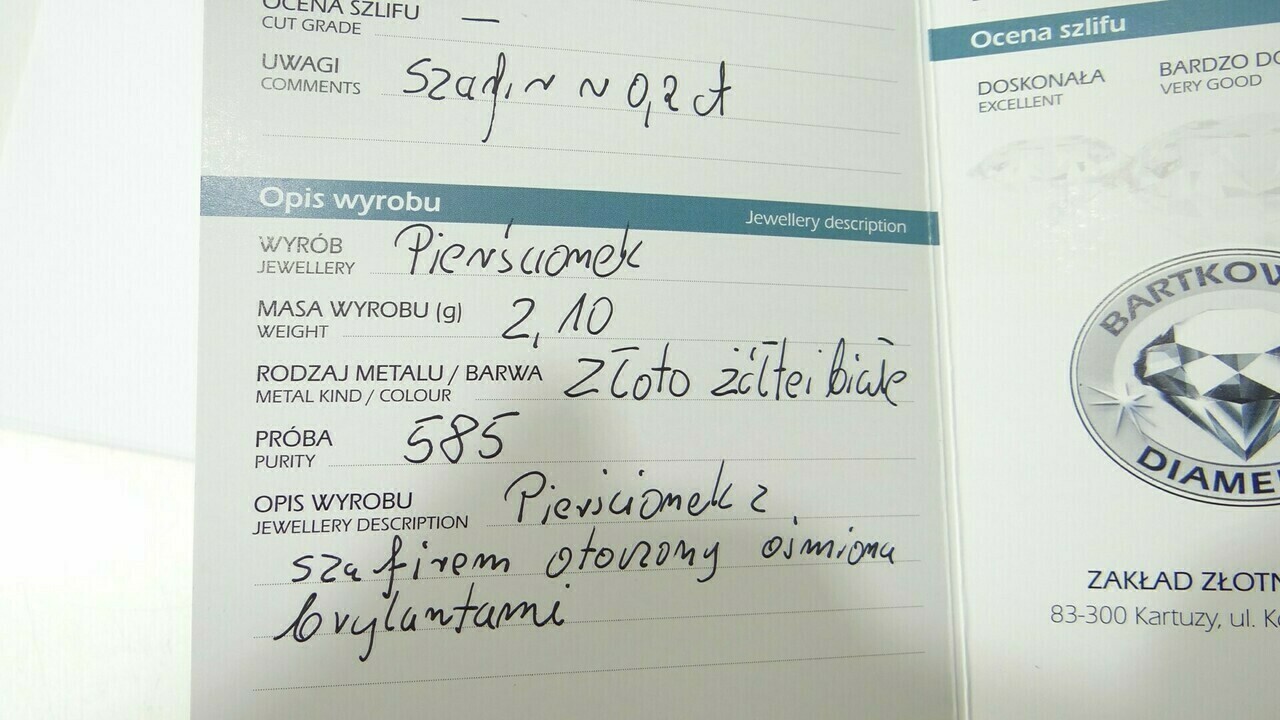 OCENA SZLIFU —
CUT GRADE
UWAGI Szafir ~ 0,2 ct
COMMENTS
Opis wyrobu Jewellery description
WYRÓB Pierścionek
JEWELLERY
MASA WYROBU (g) 2,10
WEIGHT
RODZAJ METALU / BARWA Złoto żółte i białe
METAL KIND / COLOUR
PRÓBA 585
PURITY
OPIS WYROBU Pierścionek z
JEWELLERY DESCRIPTION
szafirem otoczony ośmioma
brylantami
Ocena szlifu
DOSKONAŁA BARDZO DO
EXCELLENT VERY GOOD
BARTKOW
DIAME
ZAKŁAD ZŁOTN
83-300 Kartuzy, ul. K